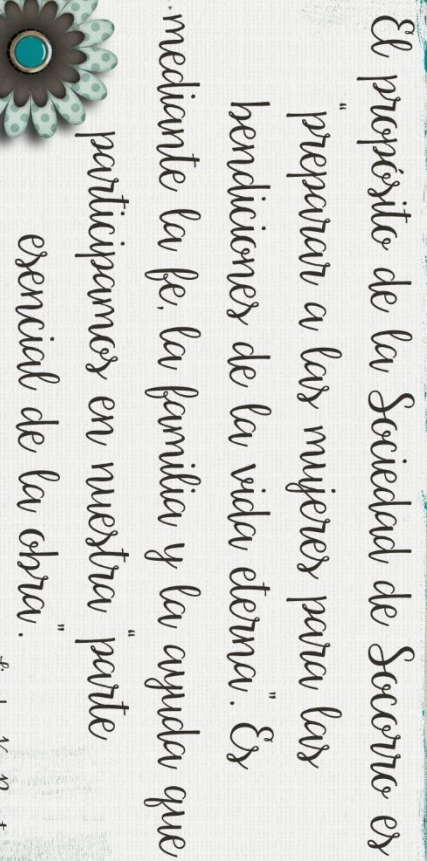 El propósito de la Sociedad de Socorro es
"preparar a las mujeres para las
bendiciones de la vida eterna". Es
mediante la fe, la familia y la ayuda que
participamos en nuestra "parte
esencial de la obra".